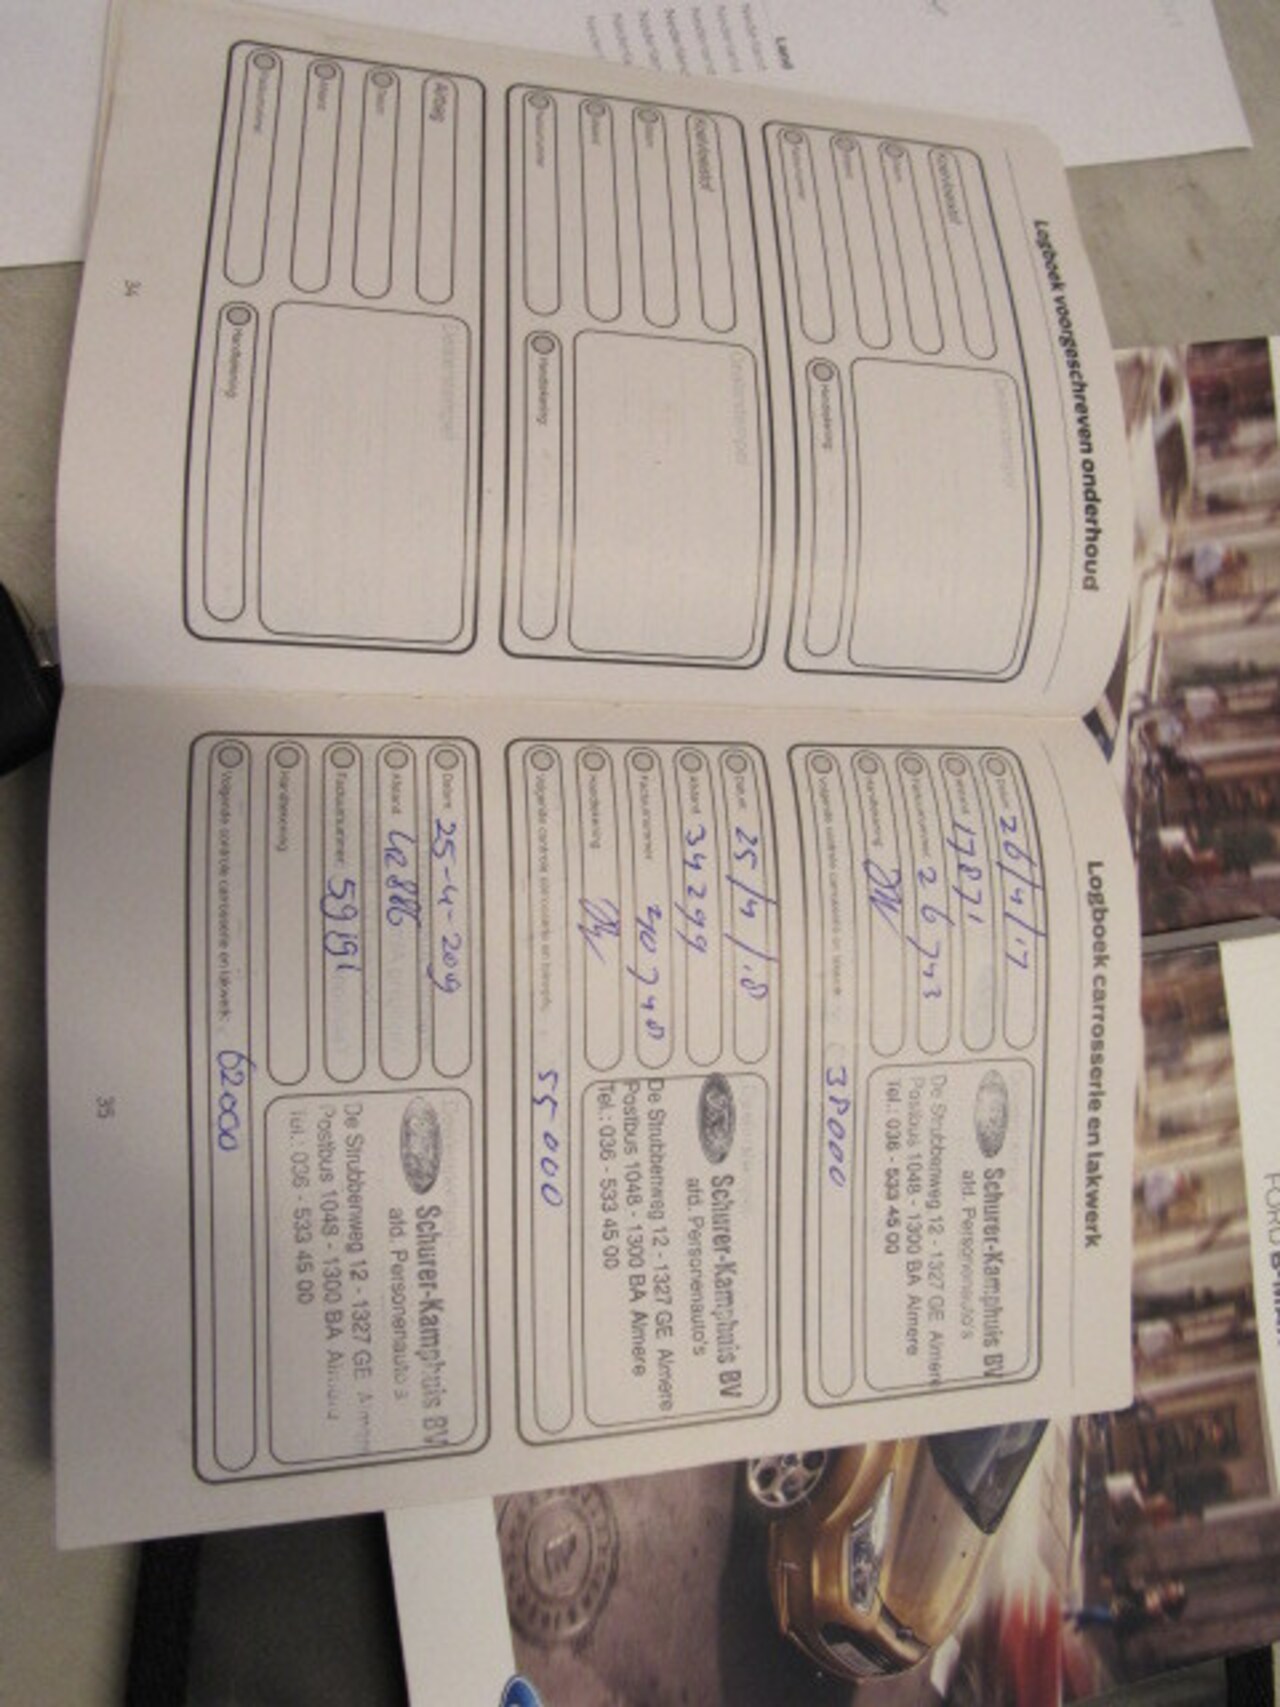 Land
Nederland
Nederland
Nederland
Nederland
Logboek voorgeschreven onderhoud
Koelvloeistof
Datum
Afstand
Factuurnummer
Handtekening
Dealerstempel
Koelvloeistof
Datum
Afstand
Factuurnummer
Handtekening
Dealerstempel
Airbag
Datum
Afstand
Factuurnummer
Handtekening
Dealerstempel
34
Logboek carrosserie en lakwerk
Datum 26/4/17
Afstand 17871
Factuurnummer 26743
Handtekening
Volgende controle carrosserie en lakwerk 38000
Schurer-Kamphuis BV
afd. Personenauto's
De Strubbenweg 12 - 1327 GE Almere
Postbus 1048 - 1300 BA Almere
Tel.: 036 - 533 45 00
Datum 25/4/18
Afstand 34299
Factuurnummer 40748
Handtekening
Volgende controle carrosserie en lakwerk 55000
Schurer-Kamphuis BV
afd. Personenauto's
De Strubbenweg 12 - 1327 GE Almere
Postbus 1048 - 1300 BA Almere
Tel.: 036 - 533 45 00
Datum 25-4-2019
Afstand 42886
Factuurnummer 59191
Handtekening
Volgende controle carrosserie en lakwerk: 62000
Schurer-Kamphuis BV
afd. Personenauto's
De Strubbenweg 12 - 1327 GE Almere
Postbus 1048 - 1300 BA Almere
Tel.: 036 - 533 45 00
35
FORD B-MAX